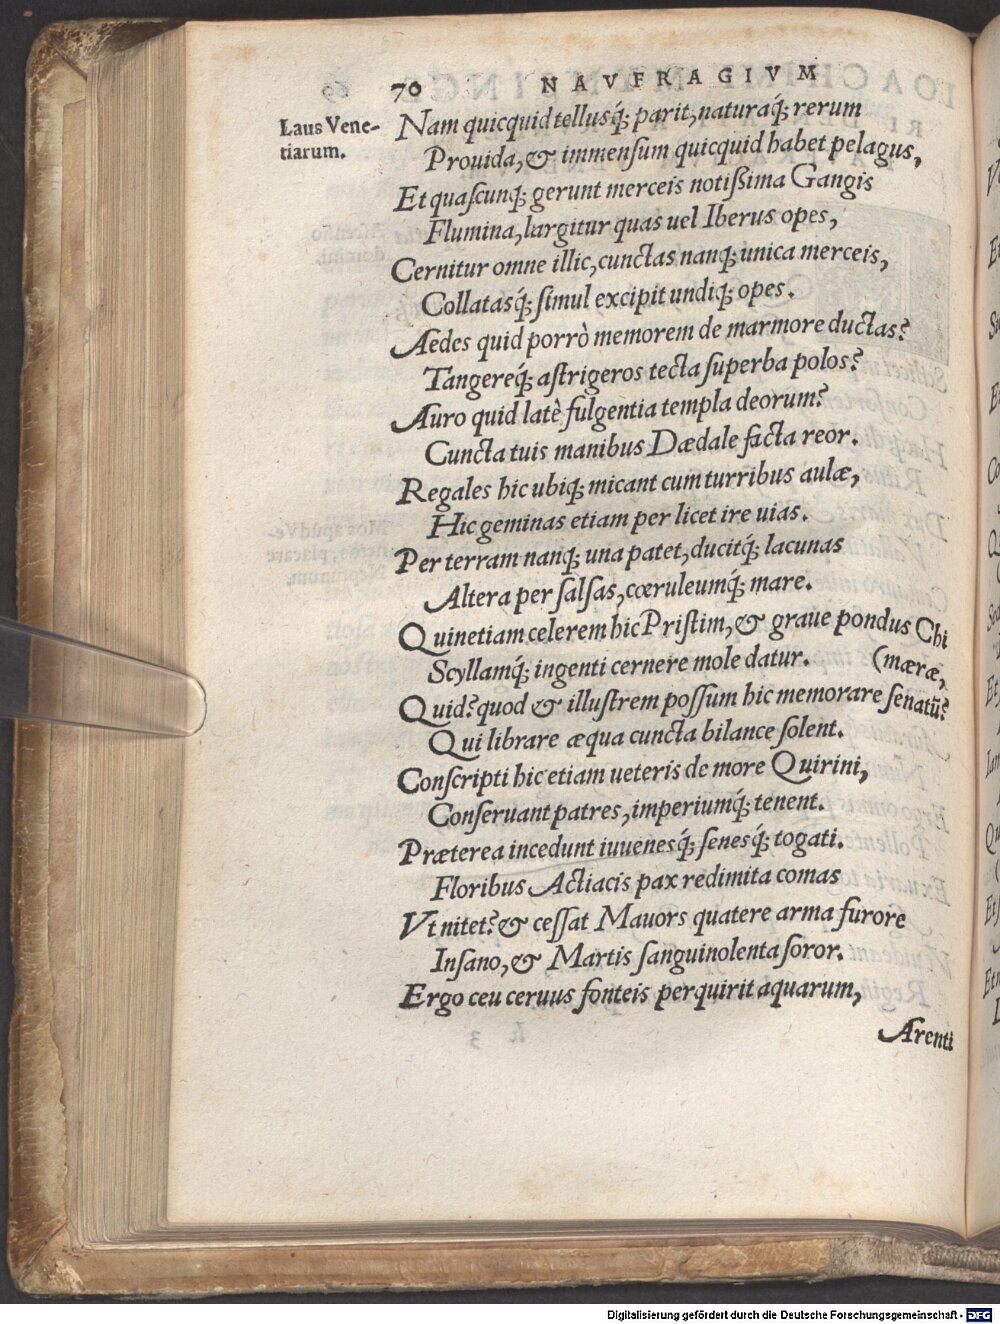 70 NAVFRAGIVM
Laus Vene-
tiarum.
Nam quicquid tellusq́; parit, naturaq́; rerum
Prouida, & immensum quicquid habet pelagus,
Et quascunq; gerunt merceis notißima Gangis
Flumina, largitur quas uel Iberus opes,
Cernitur omne illic, cunctas nanq; unica merceis,
Collatasq́; simul excipit undiq; opes.
Aedes quid porrò memorem de marmore ductas?
Tangereq́; astrigeros tecta superba polos?
Auro quid latè fulgentia templa deorum?
Cuncta tuis manibus Dædale facta reor.
Regales hic ubiq; micant cum turribus aulæ,
Hic geminas etiam per licet ire uias.
Per terram nanq; una patet, ducitq́; lacunas
Altera per salsas, cœruleumq́; mare.
Quinetiam celerem hic Pristim, & graue pondus Chi
Scyllamq́; ingenti cernere mole datur. (mæræ,
Quid? quod & illustrem possum hic memorare senatū?
Qui librare æqua cuncta bilance solent.
Conscripti hic etiam ueteris de more Quirini,
Conseruant patres, imperiumq́; tenent.
Præterea incedunt iuuenesq́; senesq́; togati.
Floribus Actiacis pax redimita comas
Vt nitet? & cessat Mauors quatere arma furore
Insano, & Martis sanguinolenta soror.
Ergo ceu ceruus fonteis perquirit aquarum,
Arenti
Digitalisierung gefördert durch die Deutsche Forschungsgemeinschaft - DFG